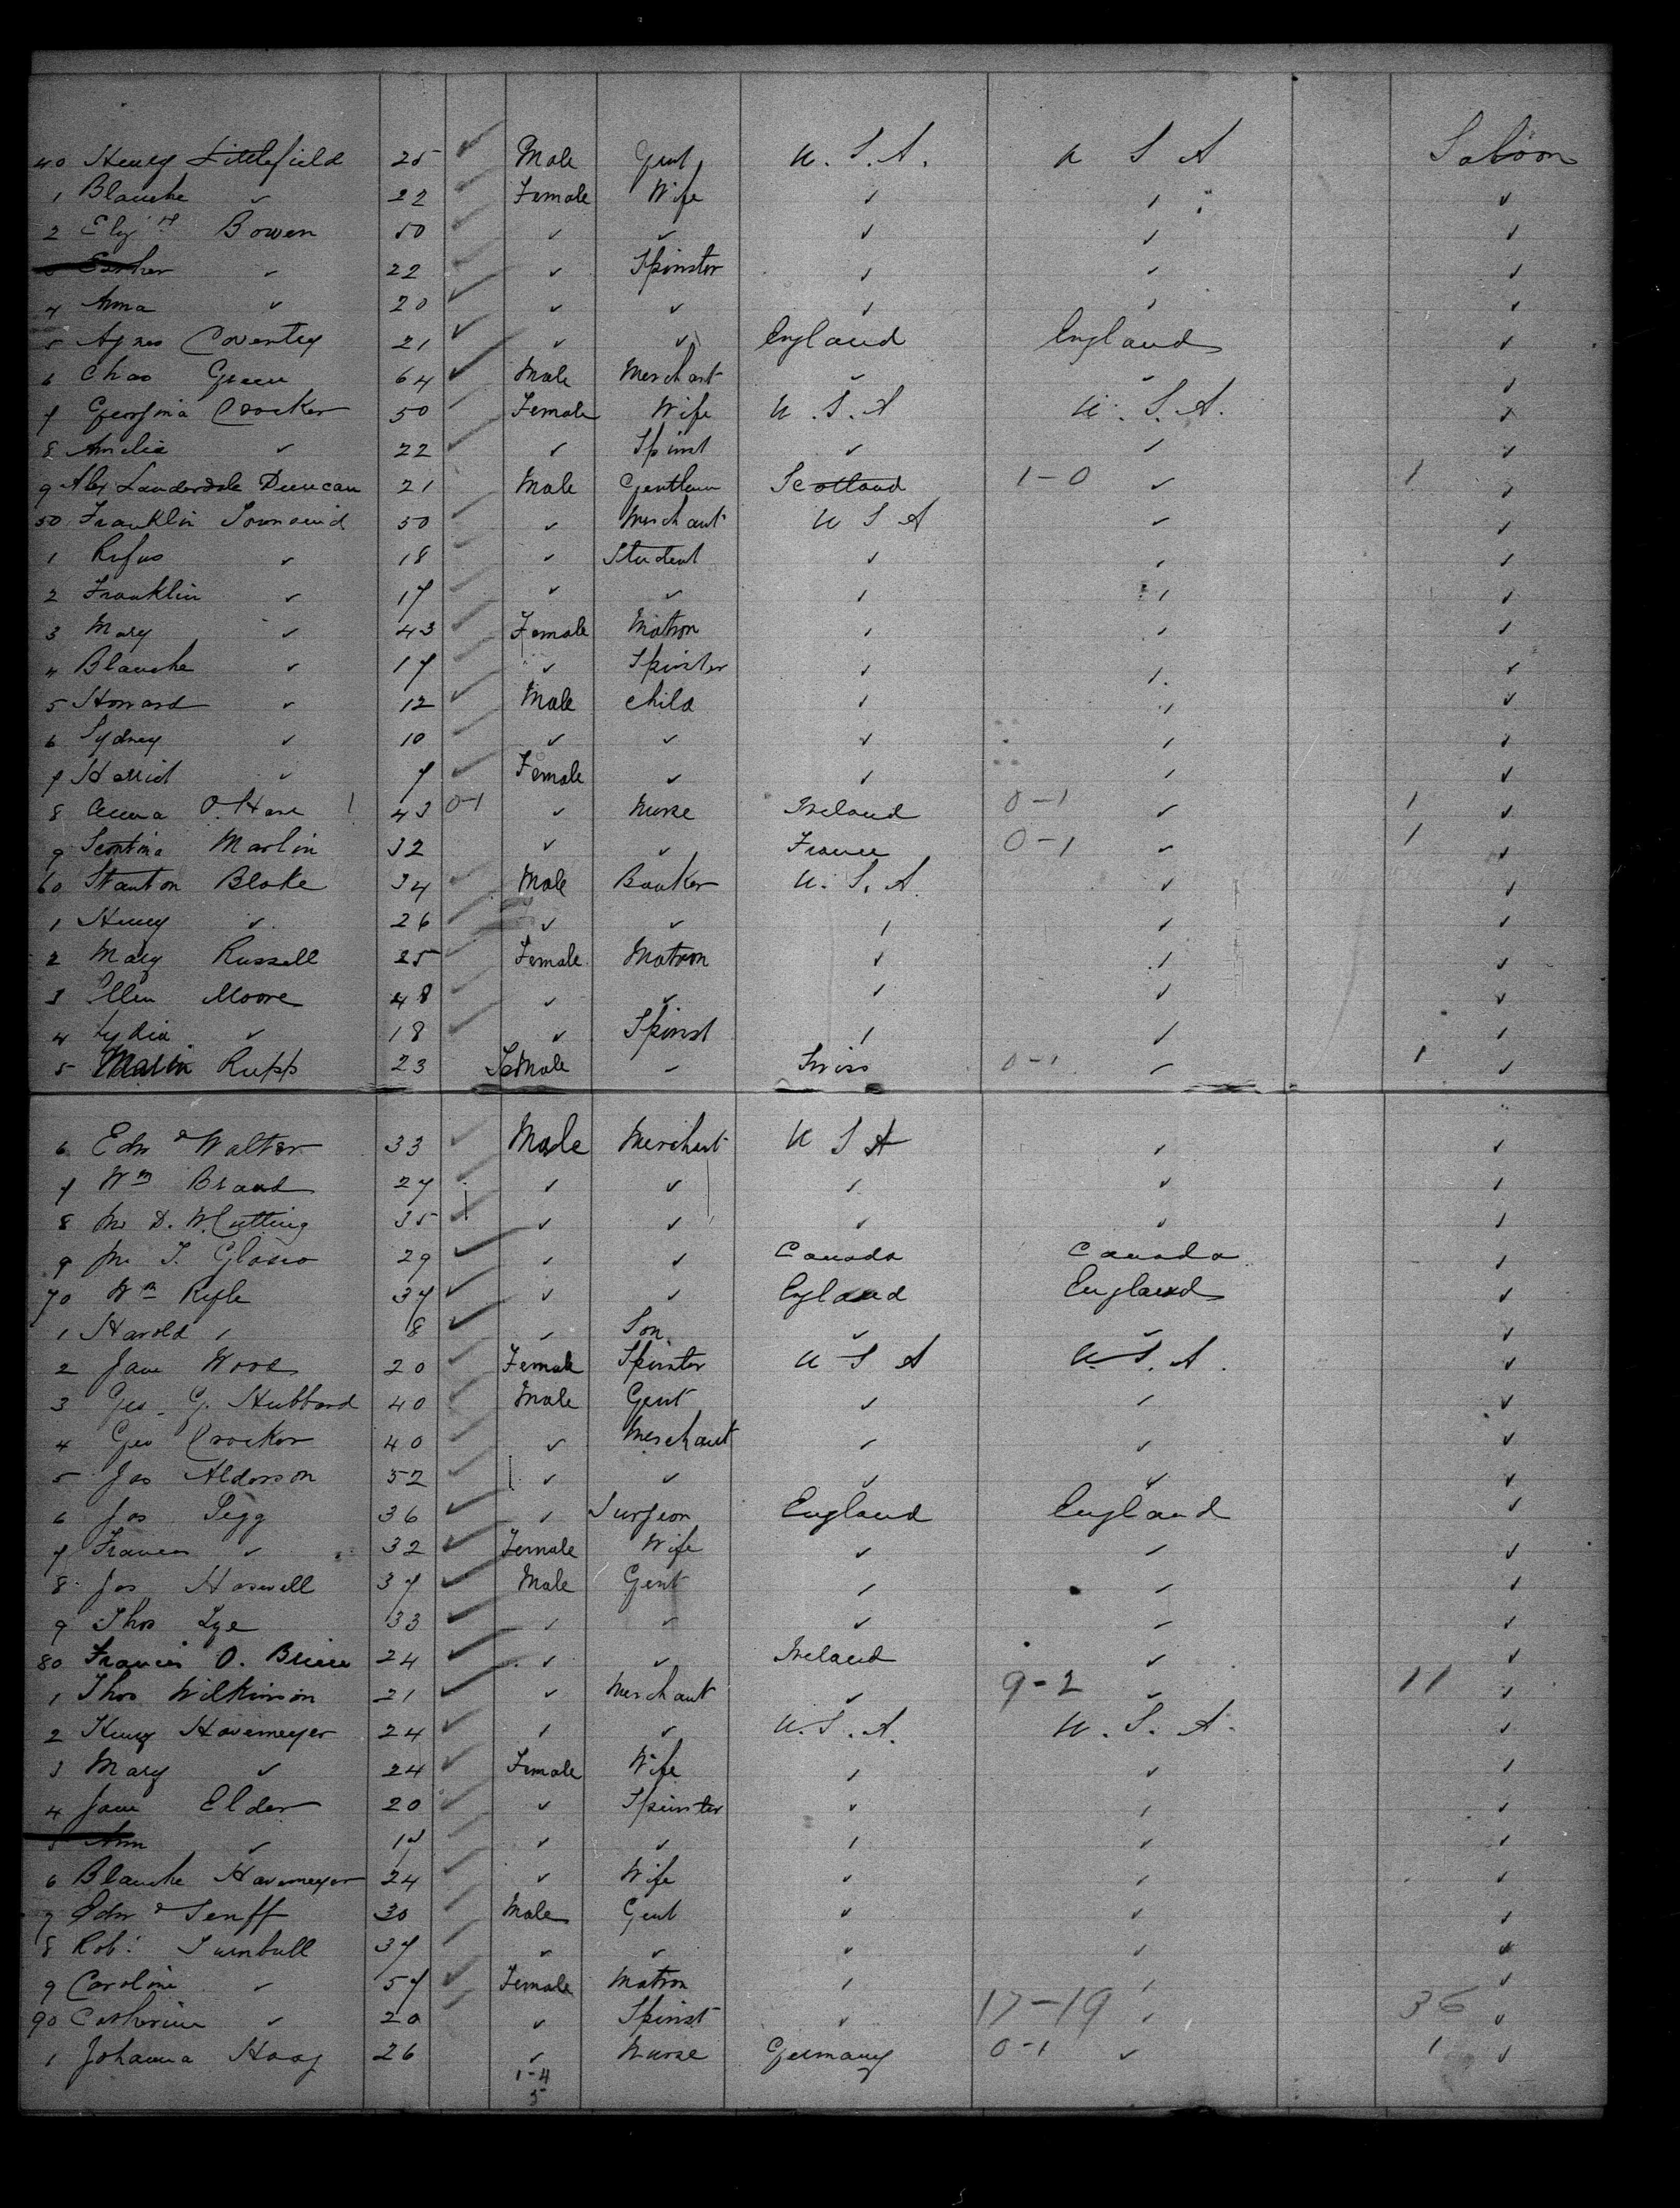 40 Henry Littlefield 25 ✓ Male Gent U. S. A. U S A Saloon
1 Blanche ✓ 22 ✓ Female Wife ✓ ✓ ✓
2 Eliz th Bowen 50 ✓ ✓ ✓ ✓ ✓ ✓
3 Esther ✓ 22 ✓ ✓ Spinster ✓ ✓ ✓
4 Anna ✓ 20 ✓ ✓ ✓ ✓ ✓ ✓
5 Agnes Coventry 21 ✓ ✓ ✓ England England ✓
6 Chas Green 64 ✓ Male Merchant ✓ ✓ ✓
7 Georgina Crocker 50 ✓ Female Wife U. S. A U. S. A. ✓
8 Amelia ✓ 22 ✓ ✓ Spinst ✓ ✓ ✓
9 Alex Lauderdale Duncan 21 Male Gentlem Scotland 1-0 ✓ 1 ✓
50 Franklin Townsend 50 ✓ ✓ Merchant U S A ✓ ✓
1 Rufus ✓ 18 ✓ ✓ Student ✓ ✓ ✓
2 Franklin ✓ 17 ✓ ✓ ✓ ✓ ✓ ✓
3 Mary ✓ 43 ✓ Female Matron ✓ ✓ ✓
4 Blanche ✓ 17 ✓ ✓ Spinster ✓ ✓ ✓
5 Howard ✓ 12 ✓ Male Child ✓ ✓ ✓
6 Sydney ✓ 10 ✓ ✓ ✓ ✓ ✓ ✓
7 Harriet ✓ 7 ✓ Female ✓ ✓ ✓ ✓
8 Anna O'Hare 43 0-1 ✓ Nurse Ireland 0-1 ✓ 1 ✓
9 Marlin 32 ✓ ✓ France 0-1 ✓ 1 ✓
60 Stanton Blake 34 ✓ Male Banker U. S. A. ✓ ✓
1 Henry ✓ 26 ✓ ✓ ✓ ✓ ✓ ✓
2 Mary Russell 25 ✓ Female Matron ✓ ✓ ✓
3 Ellen Moore 48 ✓ ✓ ✓ ✓ ✓ ✓
4 Lydia ✓ 18 ✓ ✓ Spinst ✓ ✓ ✓
5 Rupp 23 FeMale - Swiss 0-1 ✓ 1 ✓
6 Edwd Walter 33 ✓ Male Merchant U S A ✓ ✓
7 Wm Brand 27 ✓ ✓ ✓ ✓ ✓ ✓
8 Mr D. W. Cutting 35 ✓ ✓ ✓ ✓ ✓ ✓
9 Mr 29 ✓ ✓ ✓ Canada Canada ✓
70 Wm Ryle 37 ✓ ✓ ✓ England England ✓
1 Harold ✓ 8 ✓ ✓ Son ✓ ✓ ✓
2 Jane Wood 20 ✓ Female Spinster U S A U.S.A. ✓
3 Geo G. Hubbard 40 ✓ Male Gent ✓ ✓ ✓
4 Geo Crocker 40 ✓ ✓ Merchant ✓ ✓ ✓
5 Jas Alderson 52 ✓ ✓ ✓ ✓ ✓ ✓
6 Jos Pegg 36 ✓ ✓ Surgeon England England ✓
7 Frances ✓ 32 ✓ Female Wife ✓ ✓ ✓
8 Jos Haswell 37 ✓ Male Gent ✓ ✓ ✓
9 Thos Lye 33 ✓ ✓ ✓ ✓ ✓ ✓
80 Francis O. Briere 24 ✓ ✓ ✓ Ireland ✓ ✓
1 Thos Wilkinson 21 ✓ ✓ Merchant ✓ 9-2 ✓ 11 ✓
2 Henry Havemeyer 24 ✓ ✓ ✓ U.S.A. U. S. A. ✓
3 Mary ✓ 24 ✓ Female Wife ✓ ✓ ✓
4 Jane Elder 20 ✓ ✓ Spinster ✓ ✓ ✓
5 Ann ✓ ✓ ✓ ✓ ✓ ✓ ✓
6 Blanche Havemeyer 24 ✓ ✓ Wife ✓ ✓ ✓
7 Edwd Senff 30 ✓ Male Gent ✓ ✓ ✓
8 Robt Turnbull 37 ✓ ✓ ✓ ✓ ✓ ✓
9 Caroline ✓ 57 ✓ Female Matron ✓ ✓ ✓
90 Catherine ✓ 20 ✓ ✓ Spinst ✓ 17-19 ✓ 36 ✓
1 Johanna Haag 26 ✓ Nurse Germany 0-1 ✓ 1 ✓
1-4
5